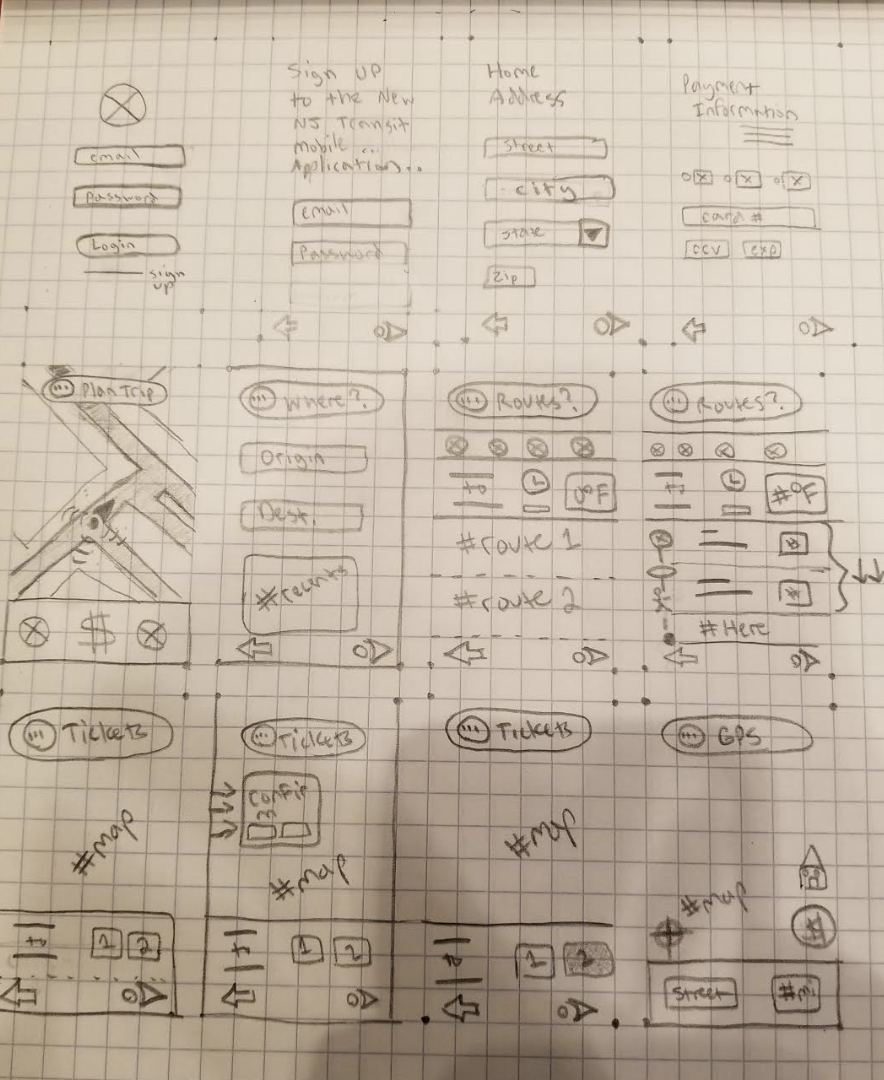 email
Password
Login
sign
up
Sign up
to the New
NJ Transit
mobile ...
Application...
email
Password
Home
Address
Street
city
state
Zip
Payment
Information
card #
ccv
exp
Plan Trip
$
Where?
Origin
Dest.
#recents
Routes?
to
0°F
#route 1
#route 2
Routes?
to
#°F
#Here
Tickets
#map
to
1
2
Tickets
#map
to
1
2
Tickets
#map
to
1
2
GPS
#map
Street
#mi